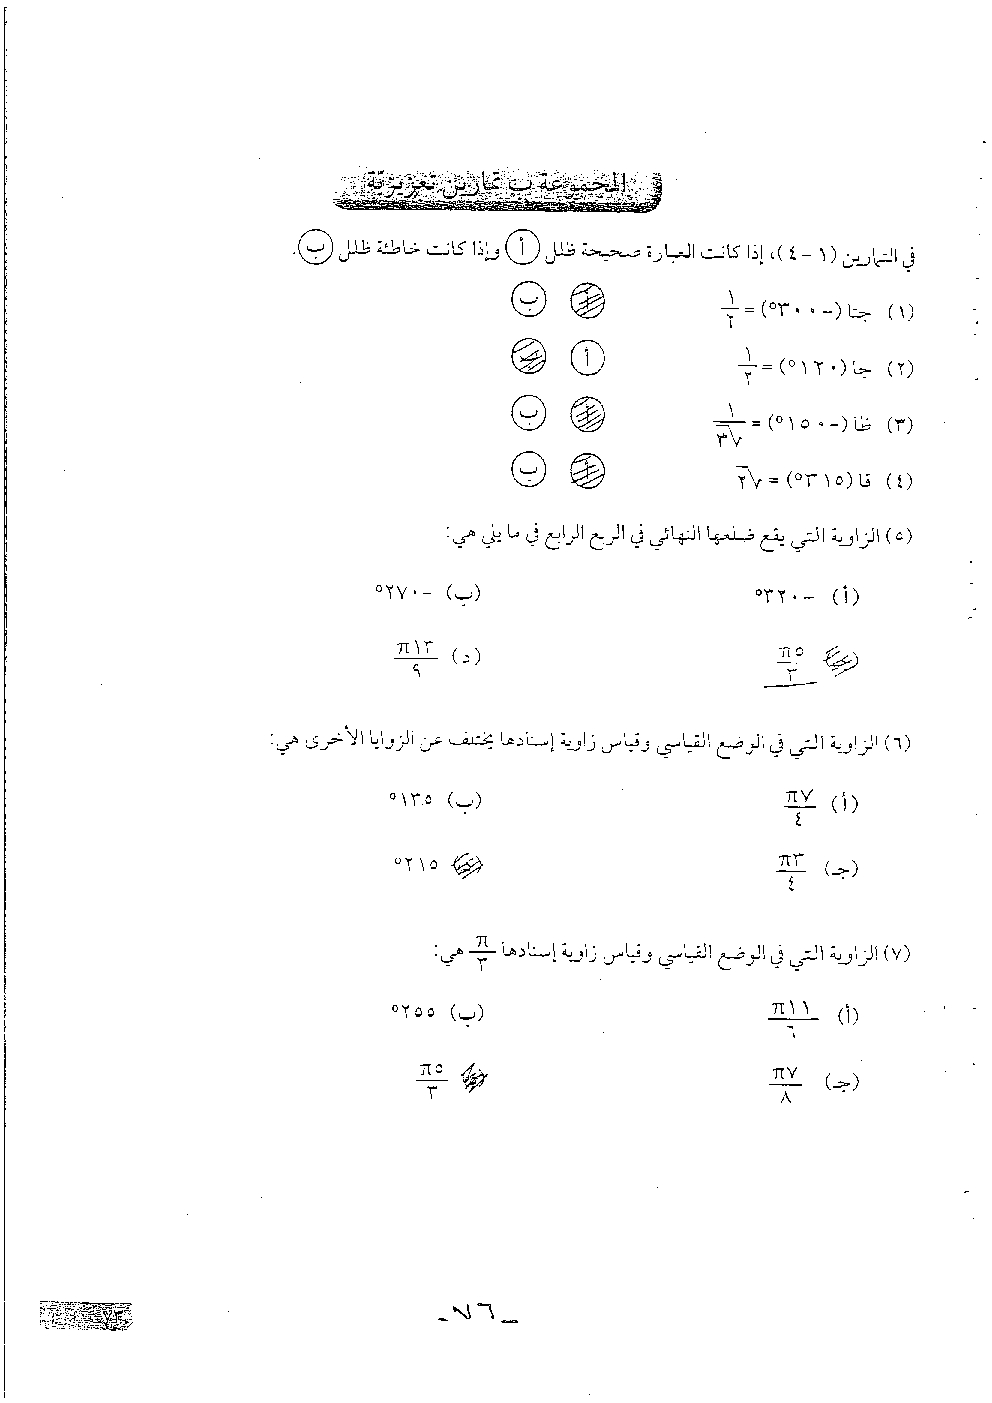 المجموعة ب تمارين تعزيزية
في التمارين (١ - ٤)، إذا كانت العبارة صحيحة ظلل أ وإذا كانت خاطئة ظلل ب.
(١) جتا (-٣٠٠°) = ١/٢ أ ب
(٢) جا (١٢٠°) = ١/٢ أ ب
(٣) ظا (-١٥٠°) = ١/√٣ أ ب
(٤) قا (٣١٥°) = √٢ أ ب
(٥) الزاوية التي يقع ضلعها النهائي في الربع الرابع في ما يلي هي:
(أ) -٣٢٠° (ب) -٢٧٠°
٥π/٣ (د) ١٣π/٩
(٦) الزاوية التي في الوضع القياسي وقياس زاوية إسنادها يختلف عن الزوايا الأخرى هي:
(أ) ٧π/٤ (ب) ١٣٥°
(جـ) ٣π/٤ ٢١٥°
(٧) الزاوية التي في الوضع القياسي وقياس زاوية إسنادها π/٣ هي:
(أ) ١١π/٦ (ب) ٢٥٥°
(جـ) ٧π/٨ ٥π/٣
- ٧٦ -
٧٣